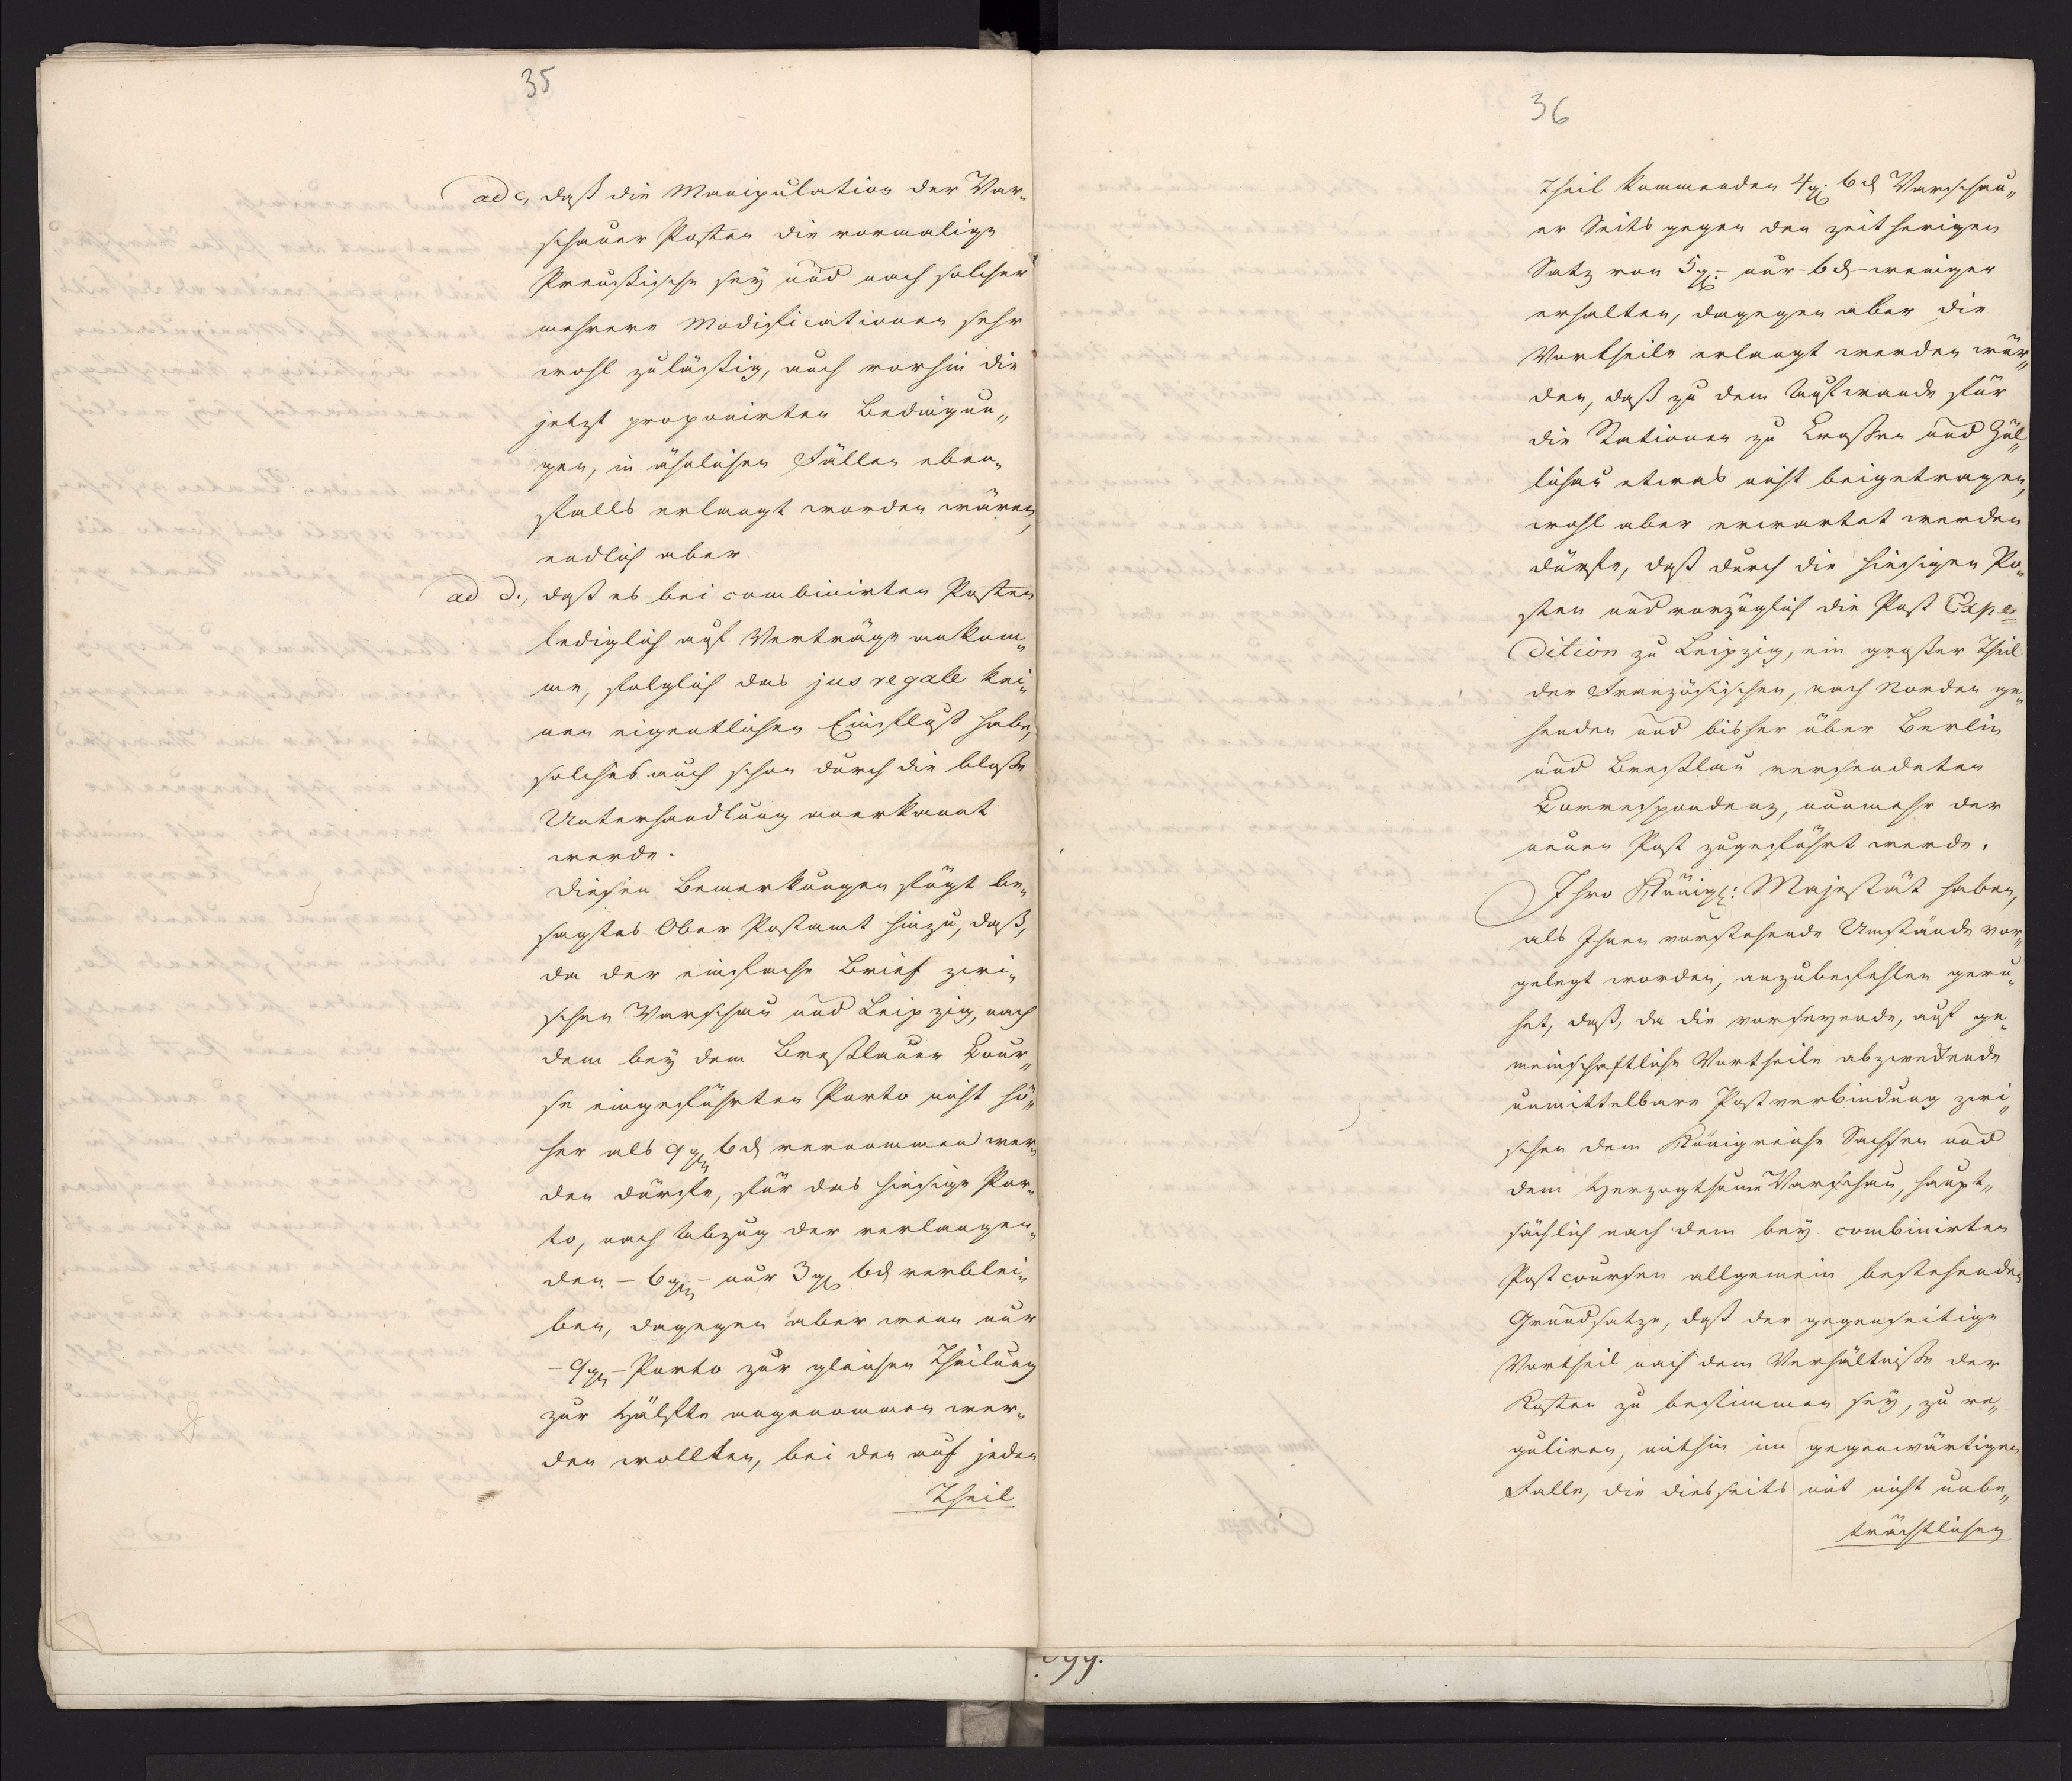 35
ad c, daß die Manipulation der War-
schauer Posten die vormalige
Preußische sey und nach solcher
mehrere Modificationen sehr
wohl zuläßig, auch vorhin die
jetzt proponirten Bedingun-
gen, in ähnlichen Fällen eben-
falls erlangt worden wären,
endlich aber
ad d., daß es bei combinirten Posten
lediglich auf Verträge ankom-
me, folglich das jus regale kei-
nen eigentlichen Einfluß habe,
solches auch schon durch die bloße
Unterhandlung anerkannt
werde.
Diesen Bemerkungen fügt be-
sagtes Ober Postamt hinzu, daß,
da der einfache Brief zwi-
schen Warschau und Leipzig, nach
dem bey dem Breßlauer Cour-
se eingeführten Porto nicht hö-
her als 9 gr 6 d vernommen wer-
den dürfte, für das hiesige Por-
to, nach Abzug der verlangen-
den - 6 gr - nur 3 gr 6 d verblei-
ben, dagegen aber wenn nur
- 9 gr - Porto zur gleichen Theilung
zur Hälfte angenommen wer-
den wollten, bei den auf jeden
Theil
36
Theil kommenden 4 gr. 6 d Warschau-
er Seits gegen den zeitherigen
Satz von 5 gr. - nur - 6 d - weniger
erhalten, dagegen aber die
Vortheile erlangt werden wür-
den, daß zu dem Aufwande für
die Stationen zu Croßen und Zül-
lichau etwas nicht beigetragen,
wohl aber erwartet werden
dürfte, daß durch die hiesigen Po-
sten und vorzüglich die Post Expe-
dition zu Leipzig, ein großer Theil
der Französischen, nach Norden ge-
henden und bisher über Berlin
und Breßlau versendeten
Correspondenz, nunmehr der
neuen Post zugeführt werde.
Ihro Königl: Majestät haben,
als Ihnen vorstehende Umstände vor-
gelegt worden, anzubefehlen geru-
het, daß, da die vorseyende, auf ge-
meinschaftliche Vortheile abzweckende
unmittelbare Postverbindung zwi-
schen dem Königreiche Sachsen und
dem Herzogthume Warschau, haupt-
sächlich nach dem bey combinirten
Postcoursen allgemein bestehenden
Grundsatze, daß der gegenseitige
Vortheil nach dem Verhältniße der
Kosten zu bestimmen sey, zu re-
guliren, mithin im gegenwärtigen
Falle, die diesseits mit nicht unbe-
trächtlichen